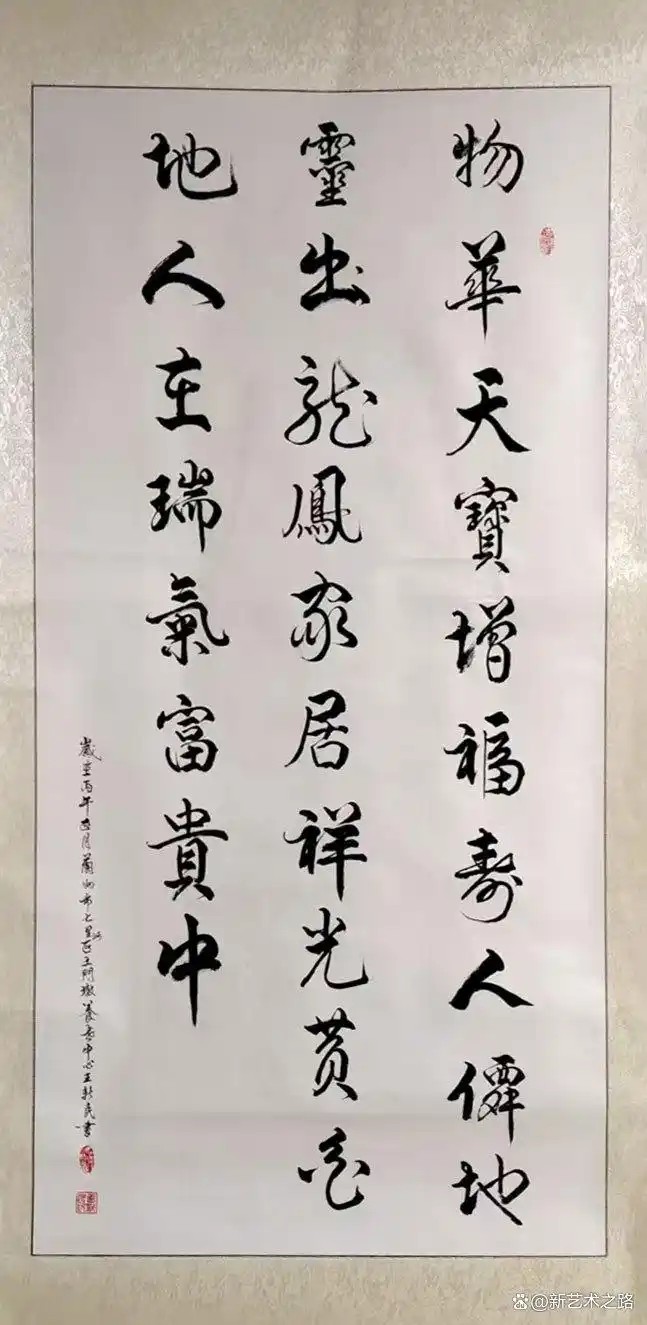 物華天寶增福壽人傑地
靈出龍鳳家居祥光黄金
地人在瑞氣富貴中
歲在丙午正月蘭州市七里河区土門墩養老中心王新民書
@新艺术之路